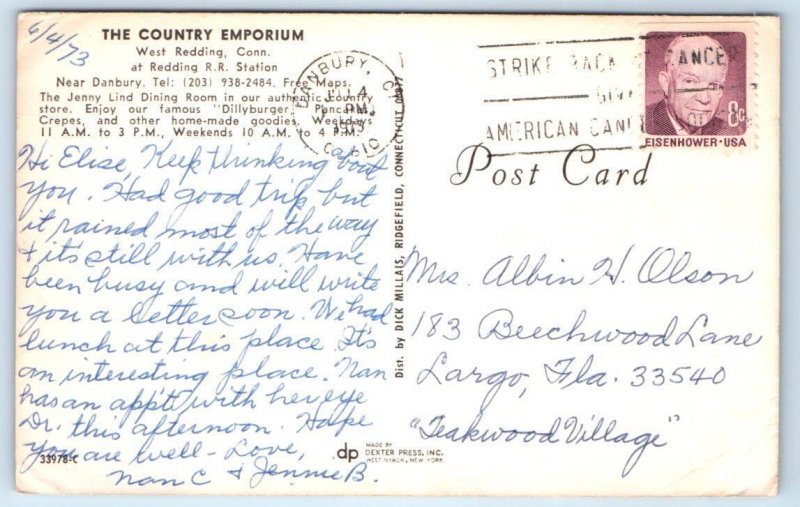 6/4/73
THE COUNTRY EMPORIUM
West Redding, Conn.
at Redding R.R. Station
Near Danbury. Tel: (203) 938-2484. Free Maps.
The Jenny Lind Dining Room in our authentic country
store. Enjoy our famous "Dillyburger," Pancakes,
Crepes, and other home-made goodies. Weekdays
11 A.M. to 3 P.M., Weekends 10 A.M. to 4 P.M.
Hi Elise, Keep thinking about
you. Had good trip but
it rained most of the way
& it's still with us. Have
been busy and will write
you a letter soon. We had
lunch at this place. It's
an interesting place. Nan
has an app't with her eye
Dr. this afternoon. Hope
you are well - Love,
Nan C & Jennie B.
33978-C
dp
MADE BY
DEXTER PRESS, INC.
WEST NYACK, NEW YORK
Dist. by DICK MILLAIS, RIDGEFIELD, CONNECTICUT 06877
DANBURY, CT
PM
1973
STRIKE BACK AT CANCER
GIVE
AMERICAN CANCER
8c
EISENHOWER · USA
Post Card
Mrs. Albin H. Olson
183 Beechwood Lane
Largo, Fla. 33540
"Teakwood Village"